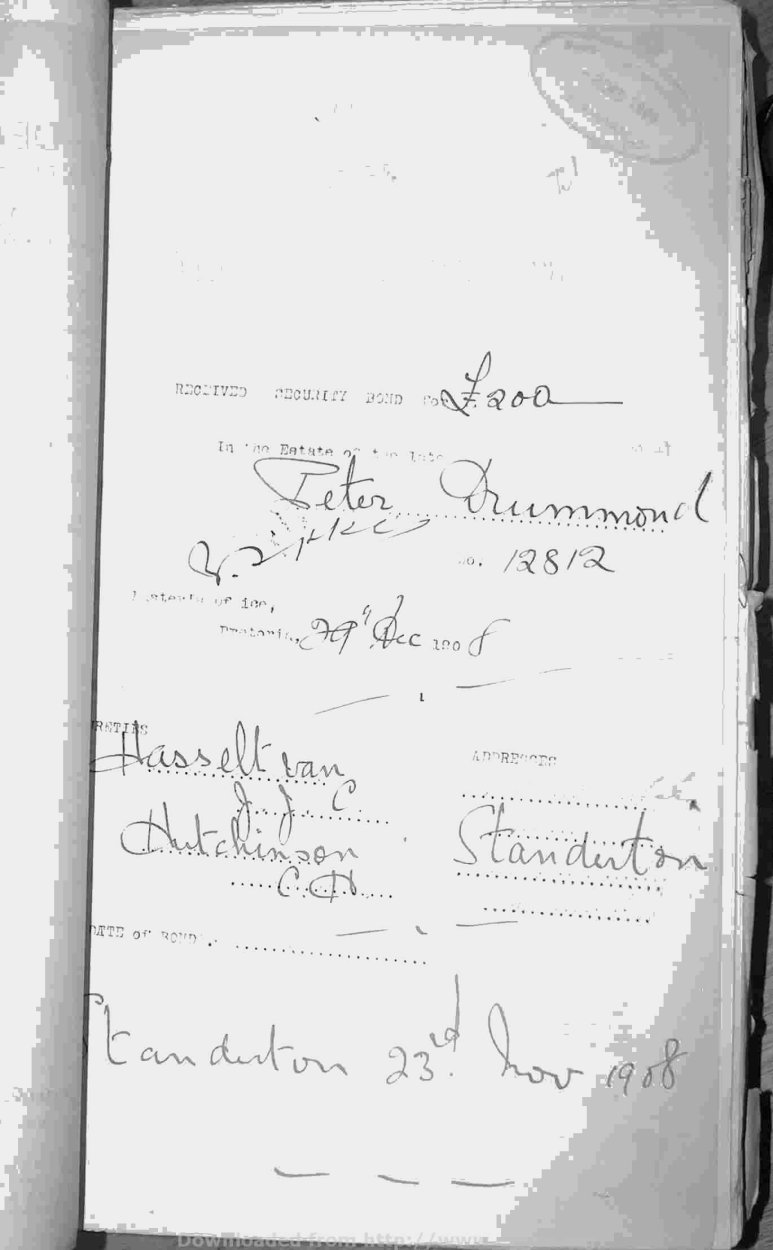 RECEIVED SECURITY BOND for £200
In the Estate of the late
Peter Drummond
No. 12812
Master's Office,
Pretoria, 29" Dec 1908
SURETIES
ADDRESSES
Hasselt van
J. J. C.
Hutchinson
Standerton
C. H.
DATE of BOND
Standerton 23rd Nov 1908
Downloaded from http://www.